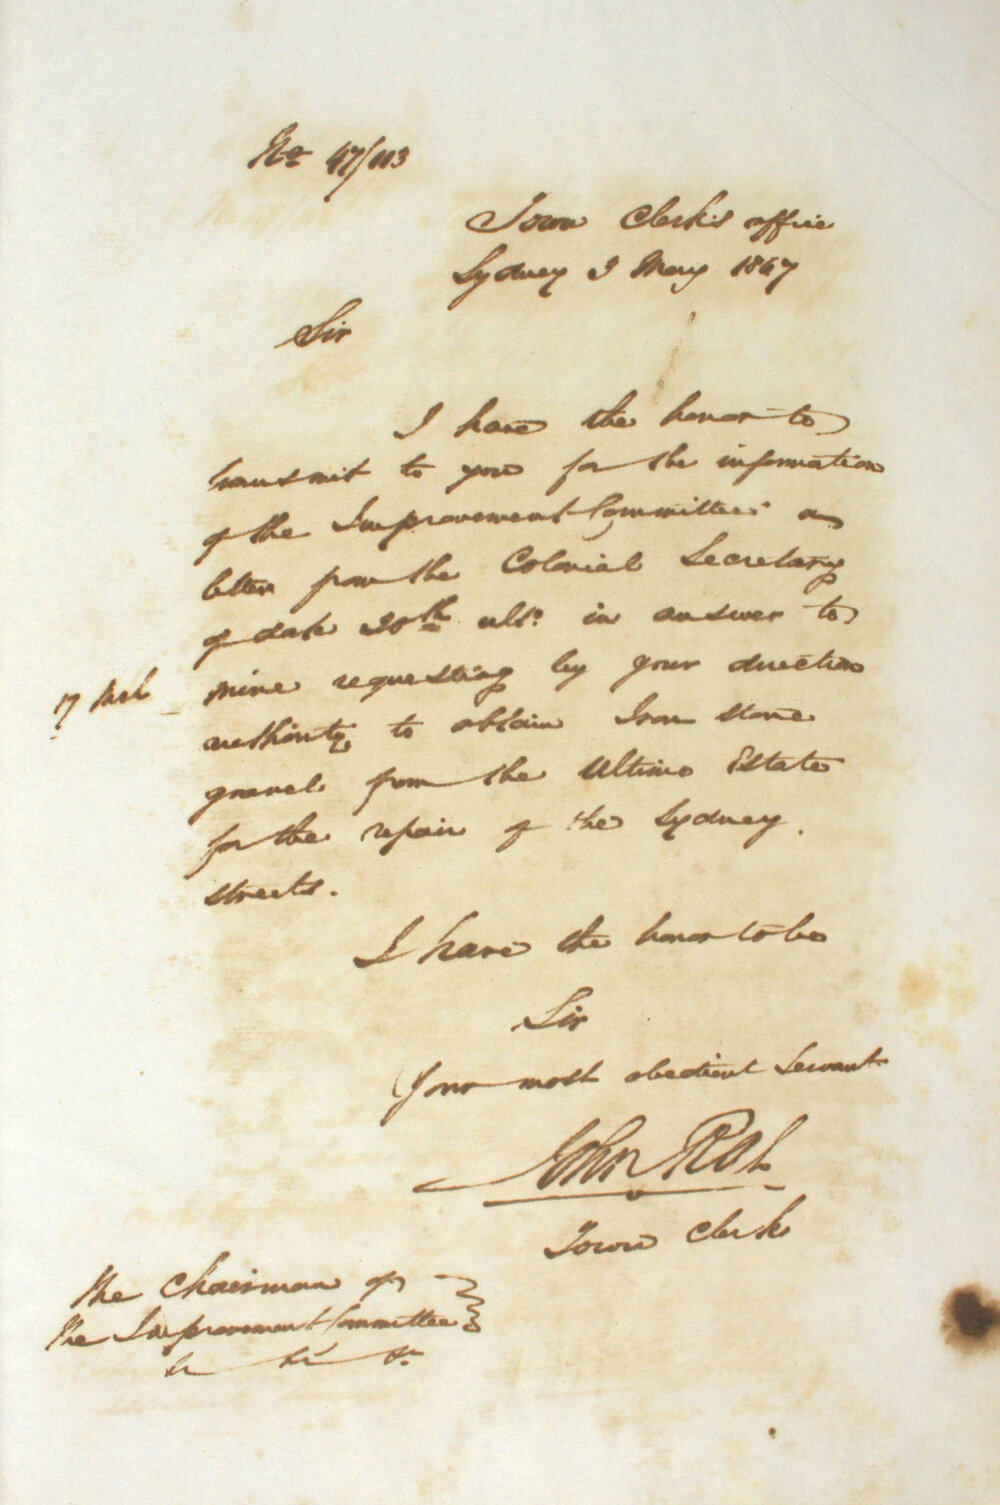 No 47/113
Town Clerk's office
Sydney 3 May 1847
Sir
I have the honor to
transmit to you for the information
of the Improvement Committee a
letter from the Colonial Secretary
of date 30th ulto. in answer to
17 Inst mine requesting by your direction
authority to obtain Iron stone
gravel from the Ultimo Estate
for the repair of the Sydney
streets.
I have the honor to be
Sir
Your most obedient Servant
John Rae
Town Clerk
The Chairman of
the Improvement Committee
&c &c &c